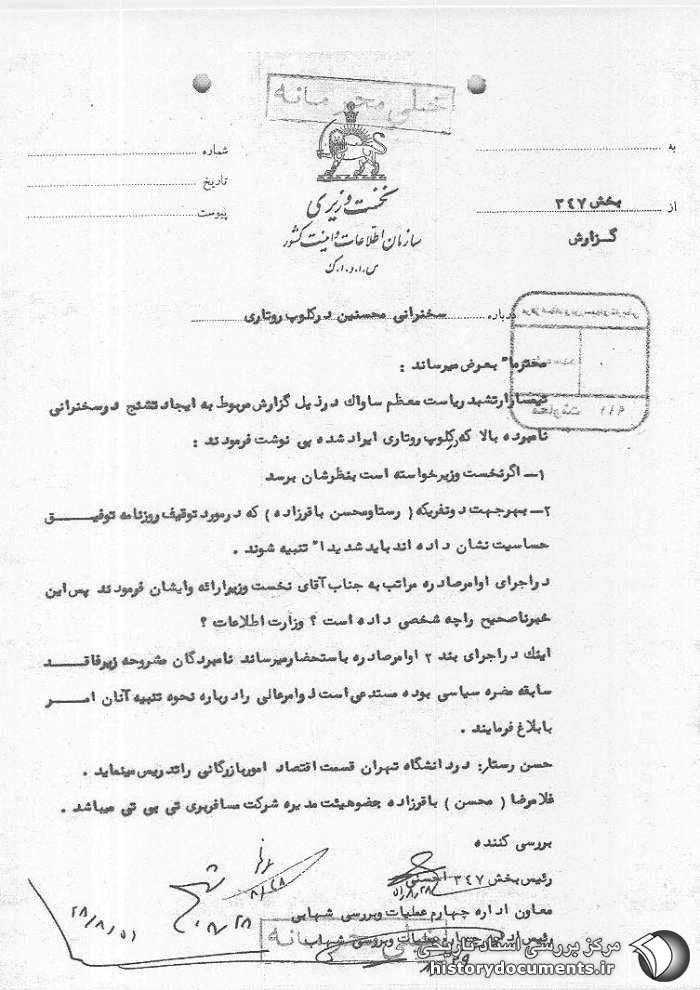 خیلی محرمانه
شماره
تاریخ
پیوست
به
از بخش ۳۴۷
گزارش
نخست وزیری
سازمان اطلاعات و امنیت کشور
س.ا.و.ا.ک
درباره سخنرانی محسنین در کلوپ روتاری
محترما" بعرض میرساند :
تیمسار ارتشبد ریاست معظم ساواك در ذیل گزارش مربوط به ایجاد تشنج در سخنرانی
نامبرده بالا که در کلوپ روتاری ایراد شده پی نوشت فرمودند :
۱- اگر نخست وزیر خواسته است بنظرشان برسد
۲- بهر جهت دو نفریکه ( رستا و محسن باقرزاده ) که در مورد توقیف روزنامه توفیق
حساسیت نشان داده اند باید شدیدا" تنبیه شوند .
در اجرای اوامر صادره مراتب به جناب آقای نخست وزیر ارائه و ایشان فرمودند پس این
خبر ناصحیح را چه شخصی داده است ؟ وزارت اطلاعات ؟
اینك در اجرای بند ۲ اوامر صادره باستحضار میرساند نامبردگان مشروحه زیر فاقد
سابقه مضره سیاسی بوده مستدعی است اوامر عالی را درباره نحوه تنبیه آنان امر
بابلاغ فرمایند .
حسن رستار: در دانشگاه تهران قسمت اقتصاد امور بازرگانی را تدریس مینماید .
غلامرضا ( محسن ) باقرزاده عضو هیئت مدیره شرکت مسافربری تی بی تی میباشد .
بررسی کننده
رئیس بخش ۳۴۷ احسنی
۵۱/۸/۲۸
معاون اداره چهارم عملیات و بررسی شهابی
۲۸/۸/۵۱
۸/۲۸
خیلی محرمانه
مرکز بررسی اسناد تاریخی
historydocuments.ir